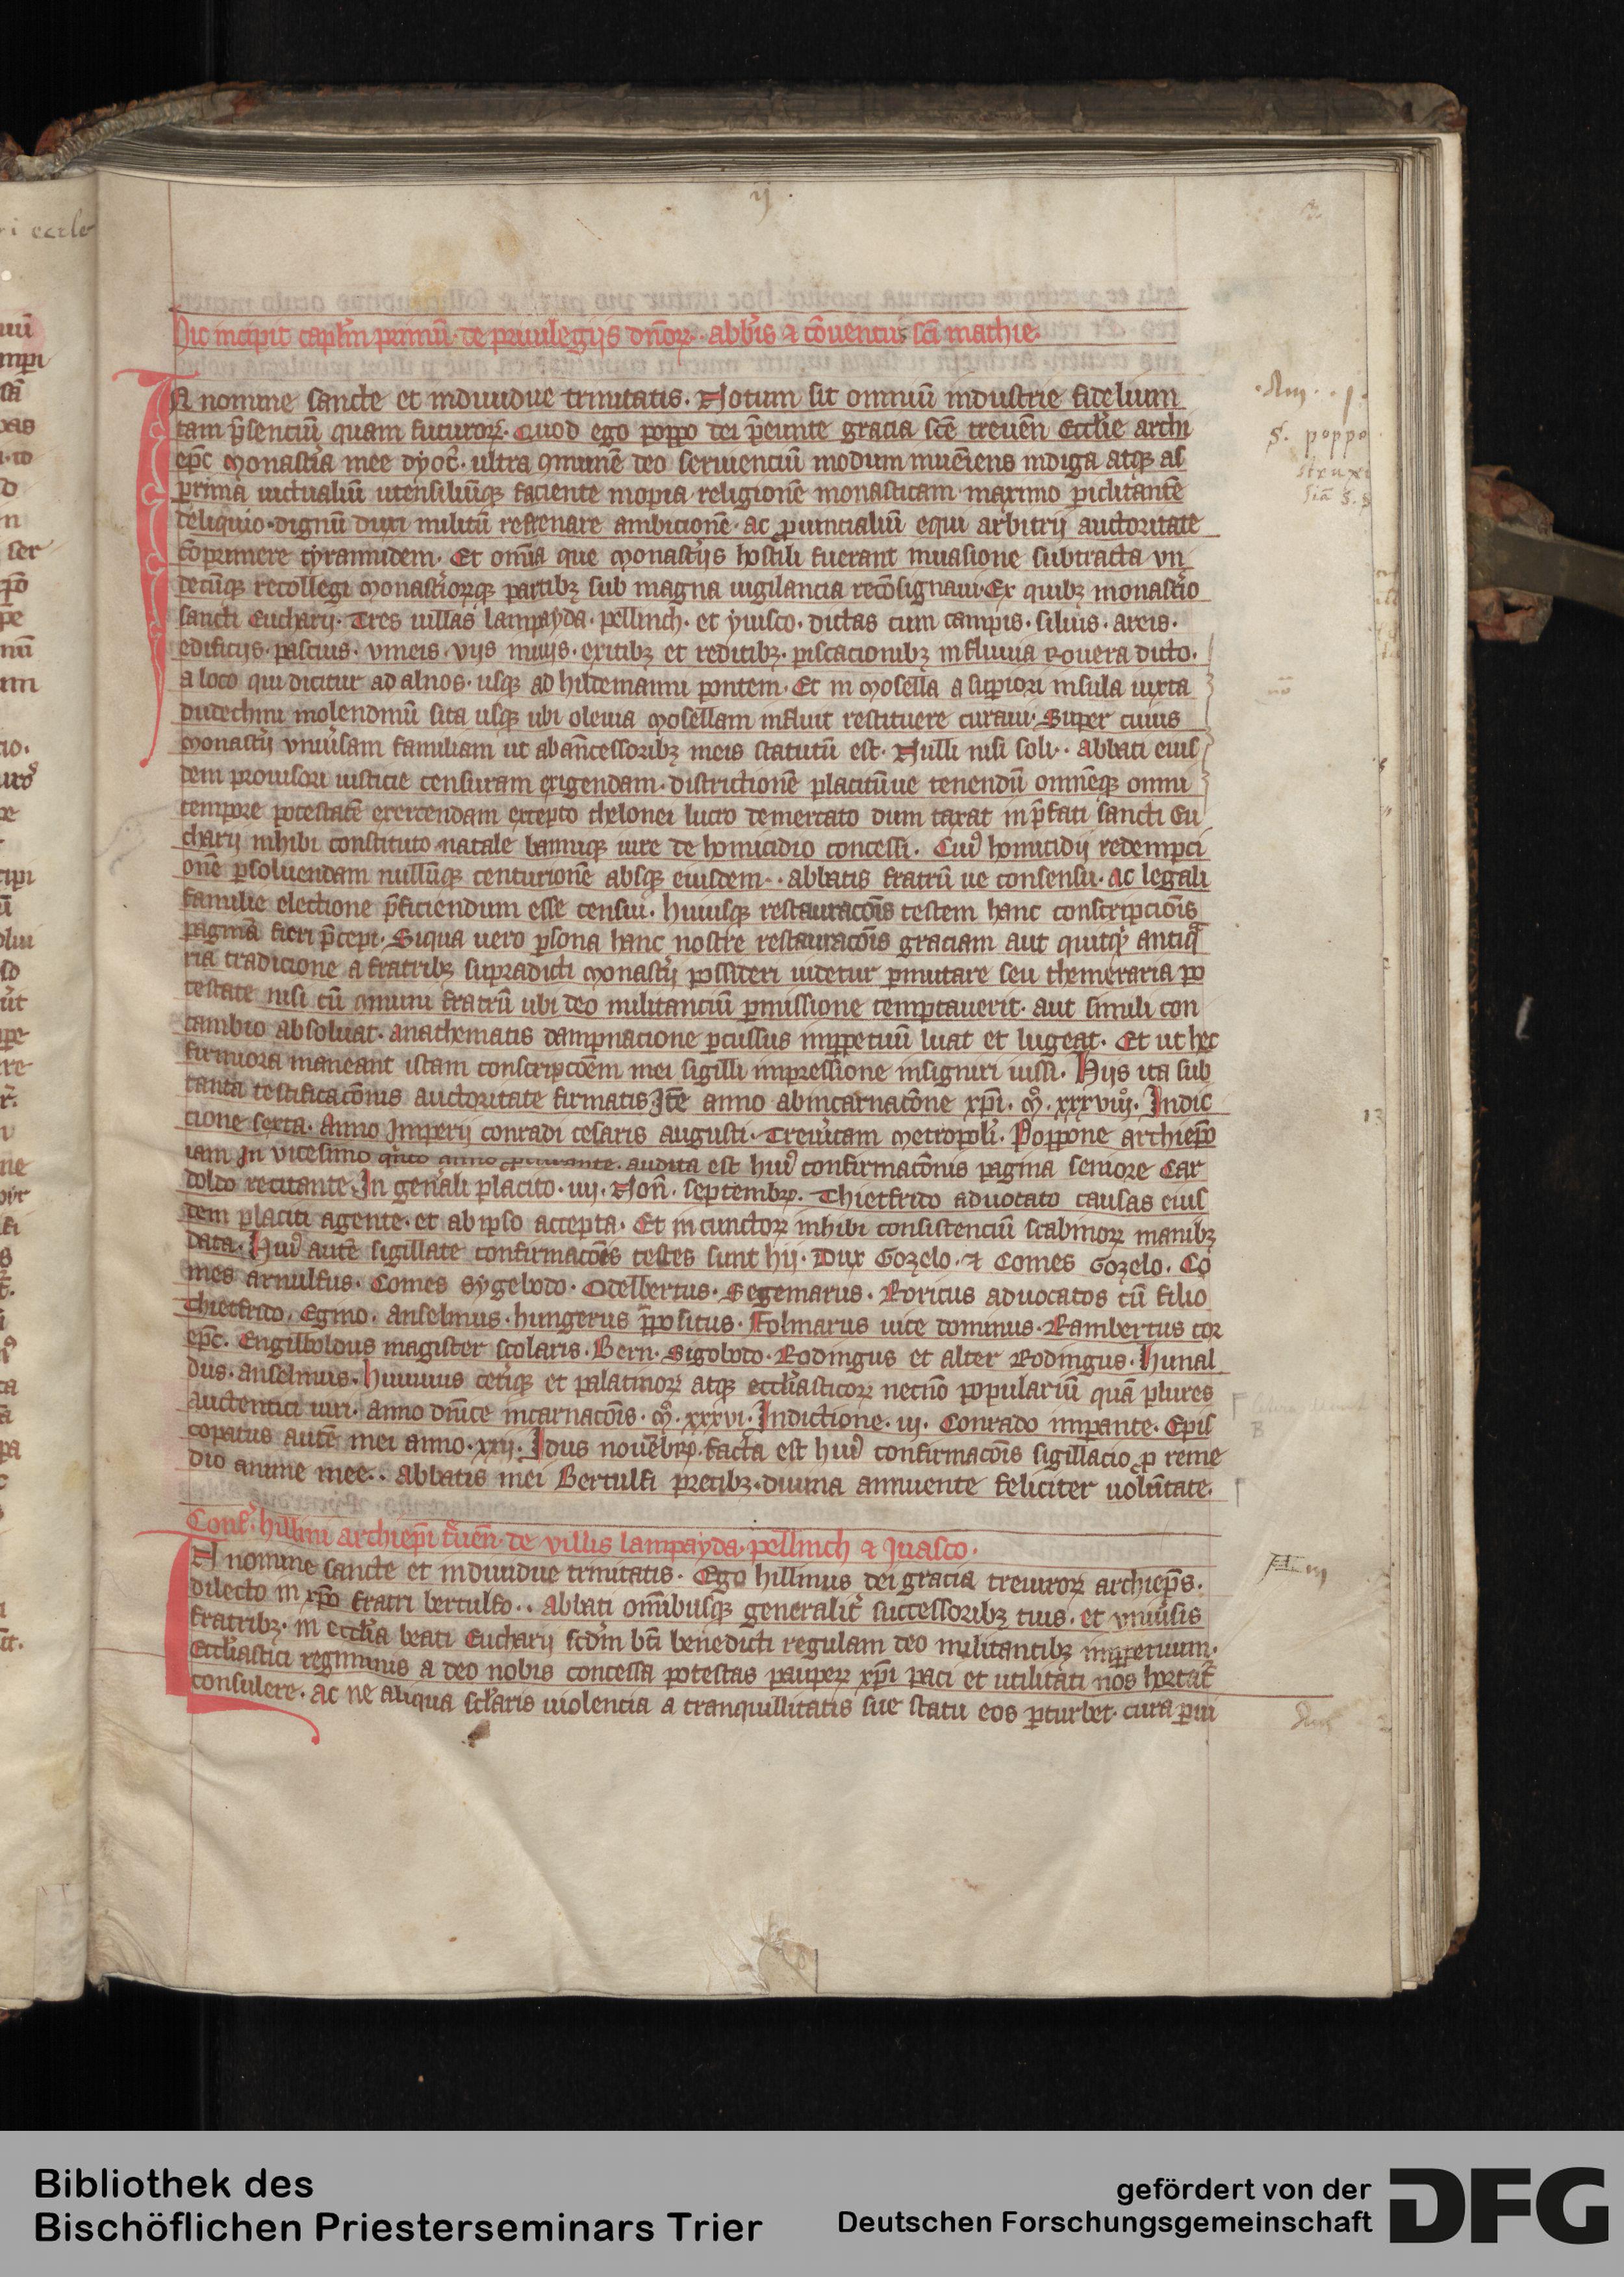 ij.
Hic incipit capłm primū de priuilegijs dn̄oꝝ abbīs ⁊ cōuentus sc̄i mathie.
In nomine sancte et indiuidue trinitatis. Notum sit omniū industrie fidelium
tam p̄senciū quam futuroꝝ. Quod ego poppo dei p̄eunte gracia sc̄e treuen̄ Eccl̄ie archi
ep̄c monast̄ia mee dyoc̄. ultra ꝯmunē deo seruienciū modum inueniens indiga atqꝫ as
prima uictualiū utensiliūqꝫ faciente inopia religionē monasticam maximo piclitantē
deliquio dignū duxi militū refrenare ambicionē. ac ꝓuincialiū equi arbitrij auctoritate
cōprimere tyrannidem. Et om̄ia que monast̄ijs hostili fuerant inuasione subtracta vn
decūqꝫ recollegi monast̄ioꝝqꝫ partibꝫ sub magna uigilancia recōsignaui. Ex quibꝫ monast̄io
sancti Eucharij. Tres uillas lampayda. pellinch. et yuisco. dictas cum campis. siluis. areis.
edificijs. pascuis. vineis. vijs inuijs. exitibꝫ et reditibꝫ. piscacionibꝫ in fluuia Rouera dicto.
a loco qui dicitur ad alnos. usqꝫ ad hildemanni pontem. Et in mosella a supiori insula iuxta
dudechini molendinū sita usqꝫ ubi oleuia mosellam influit restituere curaui. Super cuius
monast̄ij vniūsam familiam ut ab an̄cessoribꝫ meis statutū est. Nulli nisi soli. . abbati eius
dem prouisori iusticie censuram exigendam. districtionē placitūue tenendū omnēqꝫ omni
tempore potestatē exercendam excepto thelonei lucro de mercato dum taxat in p̄fati sancti Eu
charij inhibi constituto natale bannuqꝫ iure de homicidio concessi. Cuiꝰ homicidij redempci
onē psoluendam nullūqꝫ centurionē absqꝫ eiusdem. . abbatis fratrū ue consensu. ac legali
familie electione p̄ficiendum esse censui. huiusqꝫ restauracōis testem hanc conscripcōis
paginā fieri p̄cepi. Siqua uero psona hanc nostre restauracōis graciam aut quitqꝫ antiq
ria tradicione a fratribꝫ supradicti monast̄ij possideri uidetur pmutare seu themeraria po
testate nisi cū ꝯmuni fratrū ubi deo militanciū pmissione temptauerit. aut simili con
cambio absoluat. anathematis dampnacione pcussus inppetuū luat et lugeat. Et ut hec
firmiora maneant istam conscripcōem mei sigilli inpressione insigniri iussi. Hijs ita sub
tanta testificacōnis auctoritate firmatis Itē anno ab incarnacōne xp̄i. m̊. xxxviij̊. Indic
cione sexta. Anno Imperij conradi cesaris augusti. Treuūtam metropolī. Poppone archiep̄o
iam in vicesimo qn̄to anno ꝓcurante. audita est huiꝰ confirmacōnis pagina seniore Car
doldo recitante. In gen̄ali placito. iiij. Non̄. septembꝝ. Thietfrido aduocato causas eius
dem placiti agente. et ab ipso accepta. Et in cunctoꝝ inhibi consistenciū scabinoꝝ manibꝫ
data. Huiꝰ autē sigillate confirmacōis testes sunt hij. Dux Gozelo. ⁊ Comes Gozelo. Co
mes arnulfus. Comes sygebodo. Odelbertus. Segemarus. Roricus aduocatos cū filio
Thietfrido. Egino. anselmus. hungerus p̄positus. Folmarus uice dominus. Rambertus cor
ep̄c. Engilboldus magister scolaris. Bern. Sigobodo. Rodingus et alter Rodingus. Hunal
dus. anselmus. Huninus cet̄iqꝫ et palatinoꝝ atqꝫ eccl̄iasticoꝝ necnō populariū quā plures
auctentici uiri. anno dn̄ice incarnacōis. m̊. xxxvi. Indictione. iij. Conrado inpante. Epis
copatus autē mei anno. xxij. Idus nouēbrꝫ. facta est huiꝰ confirmacōis sigillacio ꝓ reme
dio anime mee. . abbatis mei Bertulfi precibꝫ. diuina annuente feliciter uolūtate.
Conf̄. hillini archiep̄i t̄uen̄. de villis lampayda. pellinch ⁊ Juasco.
In nomine sancte et indiuidue trinitatis. Ego hillinus dei gracia treuiroꝝ archiep̄s.
dilecto in xp̄o fratri bertulfo. . abbati om̄ibusqꝫ generalit̄ successoribꝫ tuis. et vniūsis
fratribꝫ. in eccl̄ia beati Eucharij scd̄m bt̄i benedicti regulam deo militantibꝫ inppetuum.
Eccl̄iastici regiminis a deo nobis concessa potestas paupeꝝ xp̄i paci et utilitati nos hortat̄
consulere. ac ne aliqua scl̄aris uiolencia a tranquillitatis sue statu eos pturbet. cura pui
S. poppo
Bibliothek des
Bischöflichen Priesterseminars Trier
gefördert von der
Deutschen Forschungsgemeinschaft
DFG